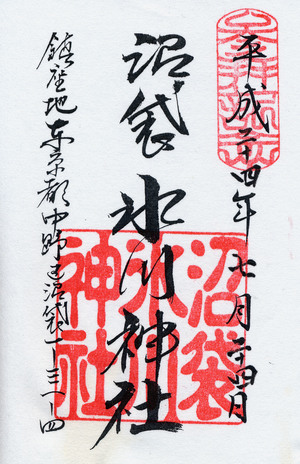 平成二十四年七月二十四日
沼袋氷川神社
鎮座地东京都中野区沼袋一ー三一ー四
沼袋
氷川
神社